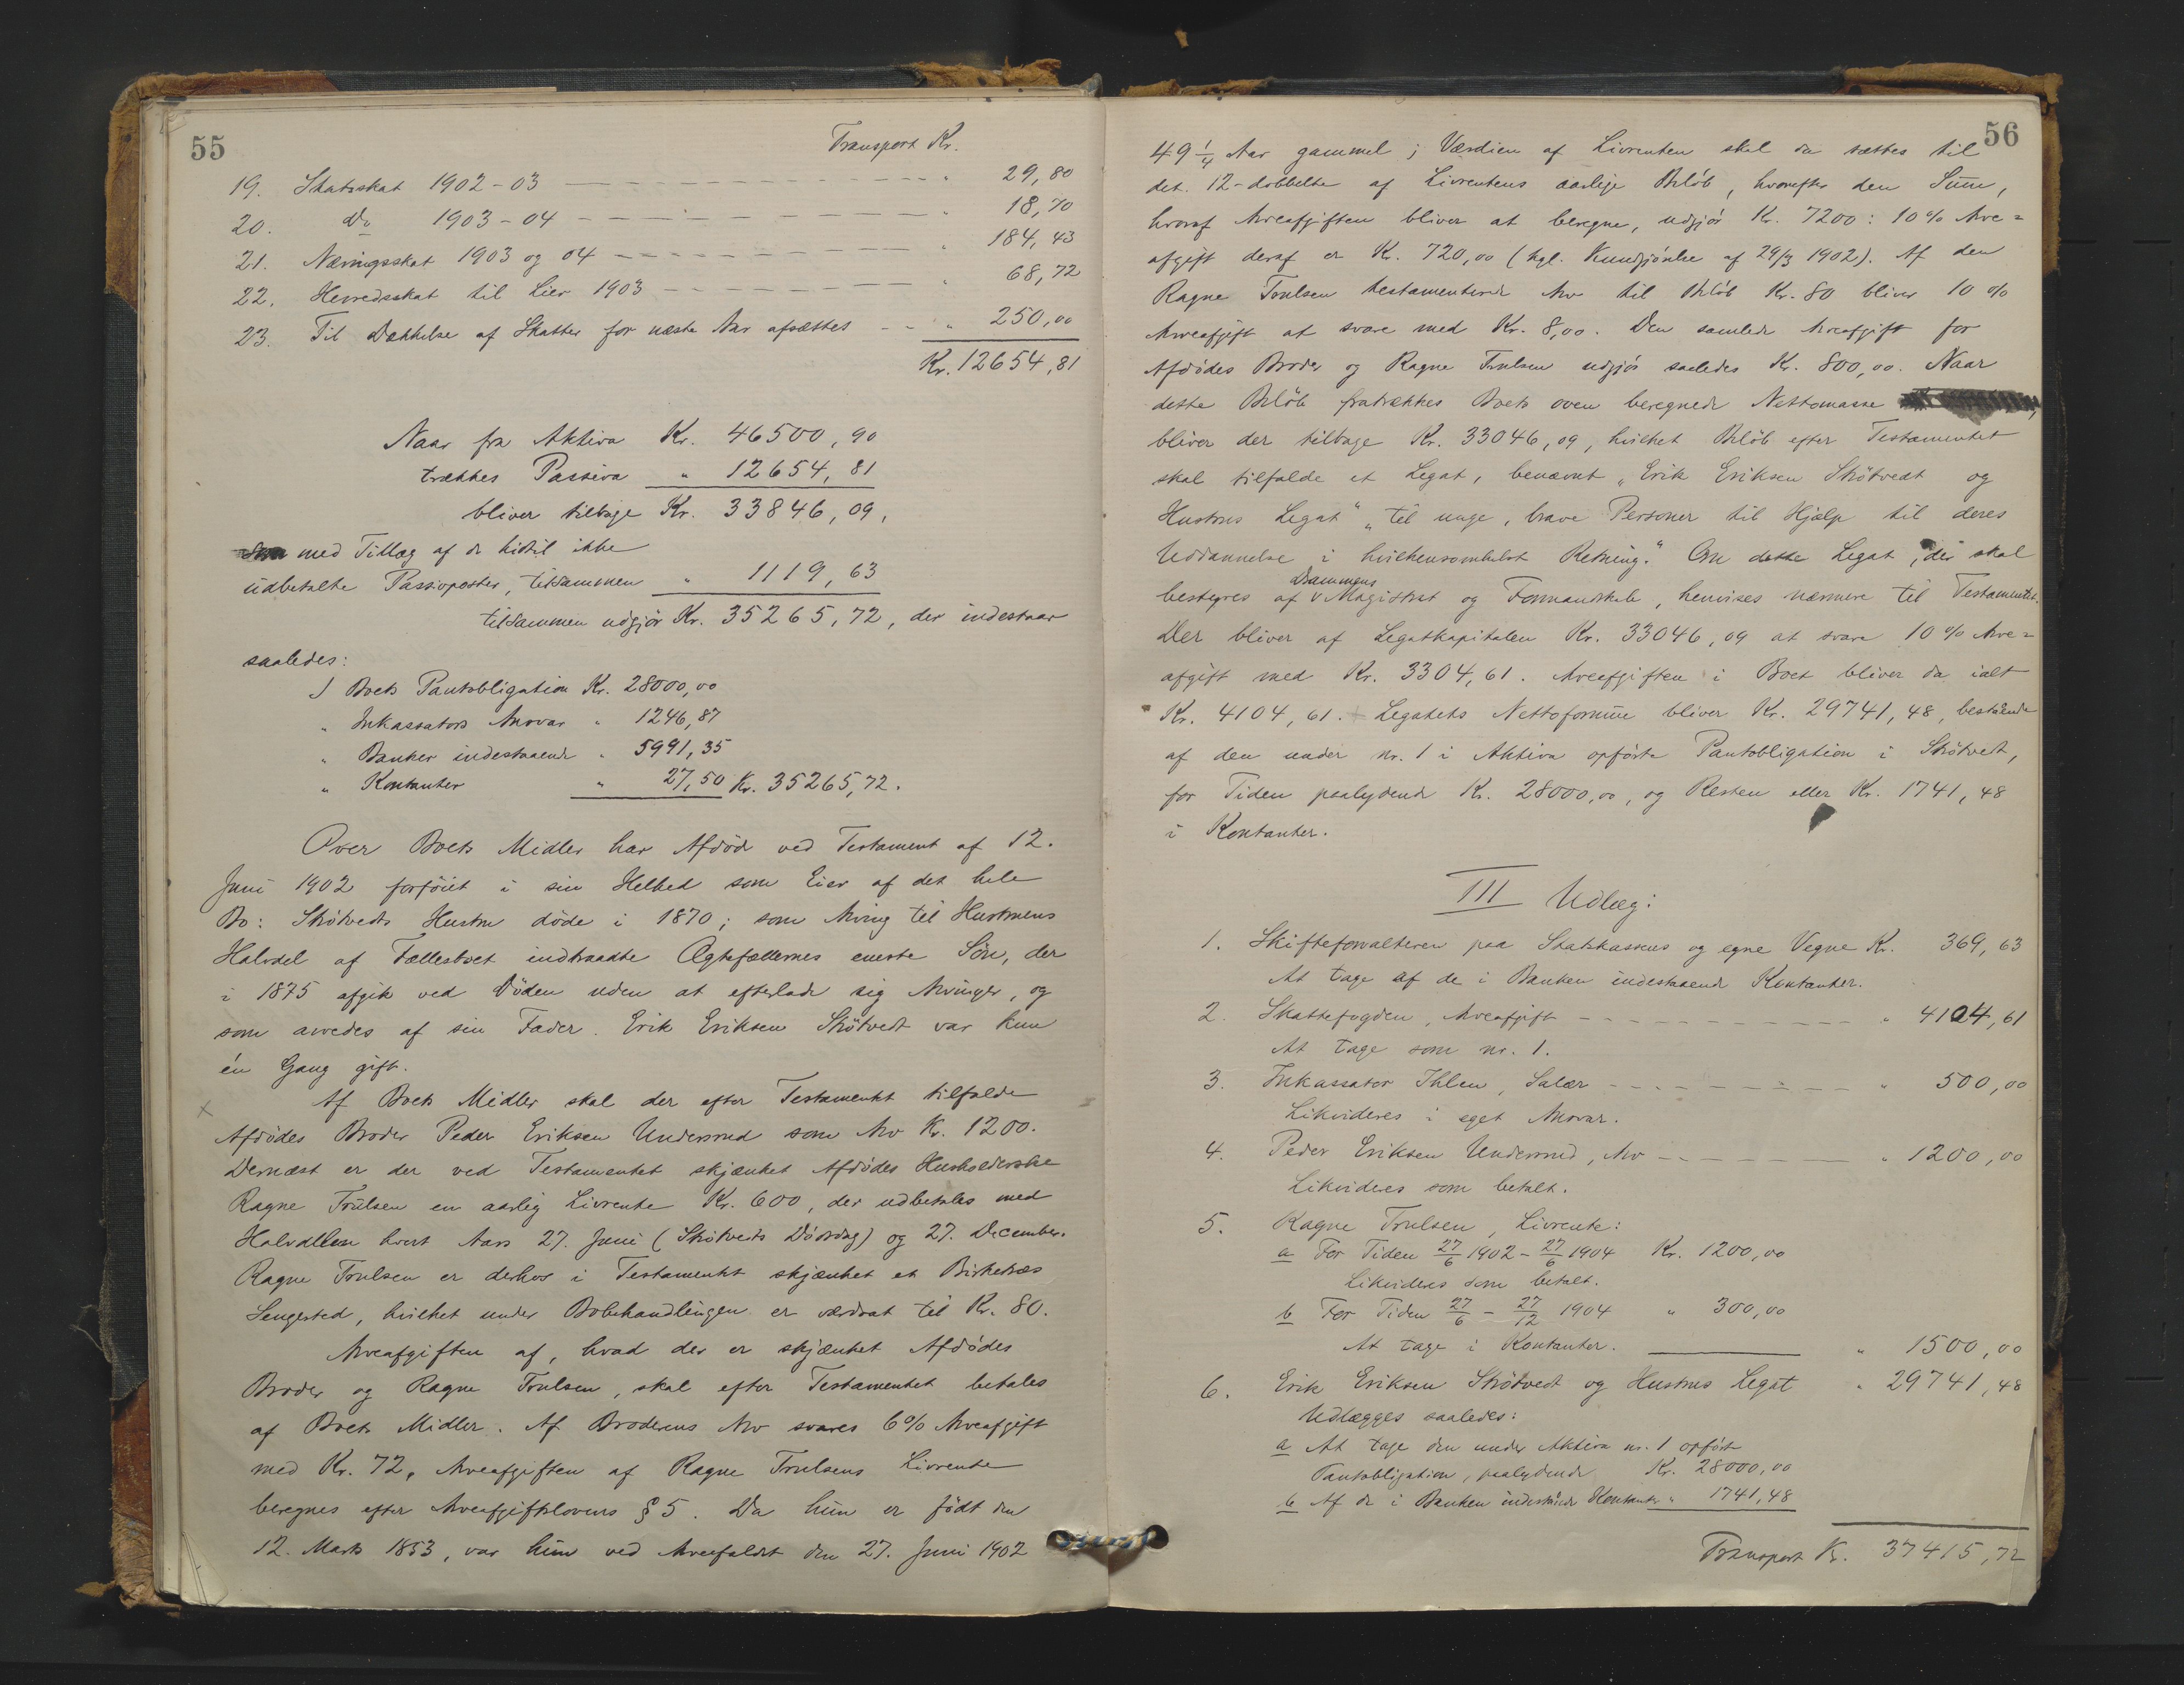 55
Transport Kr.
19. Statsskat 1902-03 " 29,80
20. Do 1903-04 " 18,70
21. Næringsskat 1903 og 04 " 184,43
22. Herredsskat til Lier 1903 " 68,72
23. Til Dækkelse af Skatter for næste Aar afsættes " 250,00
Kr. 12654,81
Naar fra Aktiva Kr. 46500,90
trækkes Passiva " 12654,81
bliver tilbage Kr. 33846,09,
med Tillæg af de hidtil ikke
udbetalte Passivposter, tilsammen " 1119,63
tilsammen udgjør Kr. 35265,72, der indestaar
saaledes:
I Boets Pantobligation Kr. 28000,00
" Inkassators Ansvar " 1246,87
" Banker indestaaende " 5991,35
" Kontanter " 27,50 Kr. 35265,72.
Over Boets Midler har Afdøde ved Testament af 12.
Juni 1902 forføiet i sin Helhed som Eier af det hele
Bo: Skötvedts Hustru døde i 1870; som Arving til Hustruens
Halvdel af Fællesboet indtraadte Ægtefællernes eneste Søn, der
i 1875 afgik ved Døden uden at efterlade sig Arvinger, og
som arvedes af sin Fader. Erik Eriksen Skötvedt var kun
én Gang gift.
Af Boets Midler skal der efter Testamentet tilfalde
Afdødes Broder Peder Eriksen Underrud som Arv Kr. 1200.
Dernæst er der ved Testamentet skjænket Afdødes Husholderske
Ragne Trulsen en aarlig Livrente Kr. 600, der udbetales med
Halvdelen hvert Aars 27. Juni (Skötvedts Dødsdag) og 27. December.
Ragne Trulsen er derhos i Testamentet skjænket et Birketræs
Sengested, hvilket under Bobehandlingen er værdsat til Kr. 80.
Arveafgiften af, hvad der er skjænket Afdødes
Broder og Ragne Trulsen, skal efter Testamentet betales
af Boets Midler. Af Broderens Arv svares 6% Arveafgift
med Kr. 72, Arveafgiften af Ragne Trulsens Livrente
beregnes efter Arveafgiftslovens § 5. Da hun er født den
12. Marts 1853, var hun ved Arvefaldet den 27. Juni 1902
56
49 1/4 Aar gammel; Værdien af Livrenten skal da sættes til
det 12-dobbelte af Livrentens aarlige Beløb, hvorefter den Sum,
hvoraf Arveafgiften bliver at beregne, udgjør Kr. 7200: 10% Arve=
afgift deraf er Kr. 720,00 (kgl. Kundgjørelse af 29/3 1902). Af den
Ragne Trulsen testamenterede Arv til Beløb Kr. 80 bliver 10%
Arveafgift at svare med Kr. 8,00. Den samlede Arveafgift for
Afdødes Broder og Ragne Trulsen udgjør saaledes Kr. 800,00. Naar
dette Beløb fratrækkes Boets oven beregnede Nettomasse
bliver der tilbage Kr. 33046,09, hvilket Beløb efter Testamentet
skal tilfalde et Legat, benævnt "Erik Eriksen Skötvedt og
Hustrus Legat" "til unge, brave Personer til Hjælp til deres
Uddannelse i hvilkensomhelst Retning." Om dette Legat, der skal
bestyres af Drammens Magistrat og Formandskab, henvises nærmere til Testamentet.
Der bliver af Legatkapitalen Kr. 33046,09 at svare 10% Arve=
afgift med Kr. 3304,61. Arveafgiften i Boet bliver da ialt
Kr. 4104,61. Legatets Nettoformue bliver Kr. 29741,48, bestående
af den under nr. 1 i Aktiva opførte Pantobligation i Skötvedt,
for Tiden paalydende Kr. 28000,00, og Resten eller Kr. 1741,48
i Kontanter.
III Udlæg:
1. Skifteforvalteren paa Statskassens og egne Vegne Kr. 369,63
At tage af de i Banken indestaaende Kontanter.
2. Skattefogden, Arveafgift " 4104,61
At tage som nr. 1.
3. Inkassator Ihlen, Salær " 500,00
Likvideres i eget Ansvar.
4. Peder Eriksen Underrud, Arv " 1200,00
Likvideres som betalt.
5. Ragne Trulsen, Livrente:
a For Tiden 27/6 1902 - 27/6 1904 Kr. 1200,00
Likvideres som betalt.
b For Tiden 27/6 - 27/12 1904 " 300,00
At tage i Kontanter. " 1500,00
6. Erik Eriksen Skötvedt og Hustrus Legat " 29741,48
Udlægges saaledes:
a At tage den under Aktiva nr. 1 opførte
Pantobligation, paalydende Kr. 28000,00
b Af de i Banken indestående Kontanter " 1741,48
Transport Kr. 37415,72